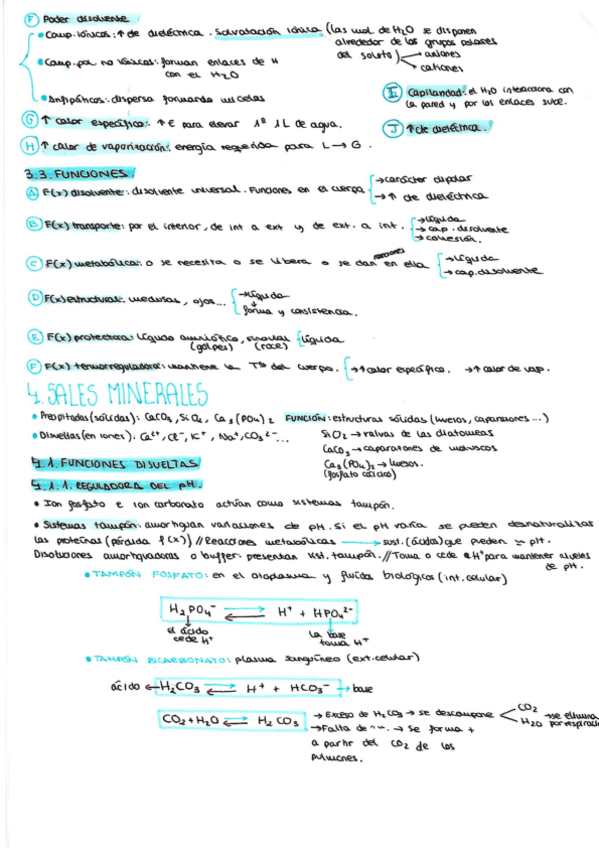 F Poder disolvente
• Comp. iónicos: ↑ de dieléctrica. Solvatación iónica (las mol de H2O se disponen
alrededor de los grupos polares
del soluto) → aniones
→ cationes
• Comp. pol no iónicos: forman enlaces de H
con el H2O
• Anfipáticos: dispersa formando micelas
I Capilaridad: el H2O interacciona con
la pared y por los enlaces sube.
G ↑ calor específico: ↑ E para elevar 1º 1L de agua.
J ↑ cte dieléctrica.
H ↑ calor de vaporización: energía requerida para L → G.
3.3. FUNCIONES
A F(x) disolvente: disolvente universal. Funciones en el cuerpo → carácter dipolar
→ ↑ cte dieléctrica
B F(x) transporte: por el interior, de int a ext y de ext. a int. → líquida
→ cap. disolvente
→ cohesión.
C F(x) metabólica: o se necesita o se libera o se dan reacciones en ella → líquida
→ cap. disolvente
D F(x) estructural: medusas, ojos... → líquida
↓
forma y consistencia.
E F(x) protectora: líquido amniótico, sinovial { líquida
(golpes) (roce)
F F(x) termorreguladora: mantiene la Tª del cuerpo. → ↑ calor específico. → ↑ calor de vap.
4. SALES MINERALES
• Precipitadas (sólidas): CaCO3, SiO2, Ca3(PO4)2 FUNCIÓN: estructuras sólidas (huesos, caparazones ...)
• Disueltas (en iones): Ca2+, Cl-, K+, Na+, CO3 2- ...
SiO2 → valvas de las diatomeas
CaCO3 → caparazones de moluscos
Ca3(PO4)2 → huesos.
(fosfato cálcico)
4.1. FUNCIONES DISUELTAS
4.1.1. REGULADORA DEL pH.
• Ion fosfato e ion carbonato actúan como sistemas tampón.
• Sistemas tampón: amortiguan variaciones de pH. Si el pH varía se pueden desnaturalizar
las proteínas (pérdida f(x)) // Reacciones metabólicas → sust. (ácidos) que pueden ≈ pH.
Disoluciones amortiguadoras o buffer: presentan sist. tampón. // Toma o cede H+ para mantener niveles
de pH.
• TAMPÓN FOSFATO: en el citoplasma y fluidos biológicos (int. celular)
H2PO4- ⇌ H+ + HPO4 2-
↓ el ácido cede H+ ↓ la base toma H+
• TAMPÓN BICARBONATO: plasma sanguíneo (ext. celular)
ácido ← H2CO3 ⇌ H+ + HCO3- → base
CO2 + H2O ⇌ H2CO3 → Exceso de H2CO3 → se descompone < CO2 H2O → se elimina por respiració
→ Falta de ~~. → se forma +
a partir del CO2 de los
pulmones.